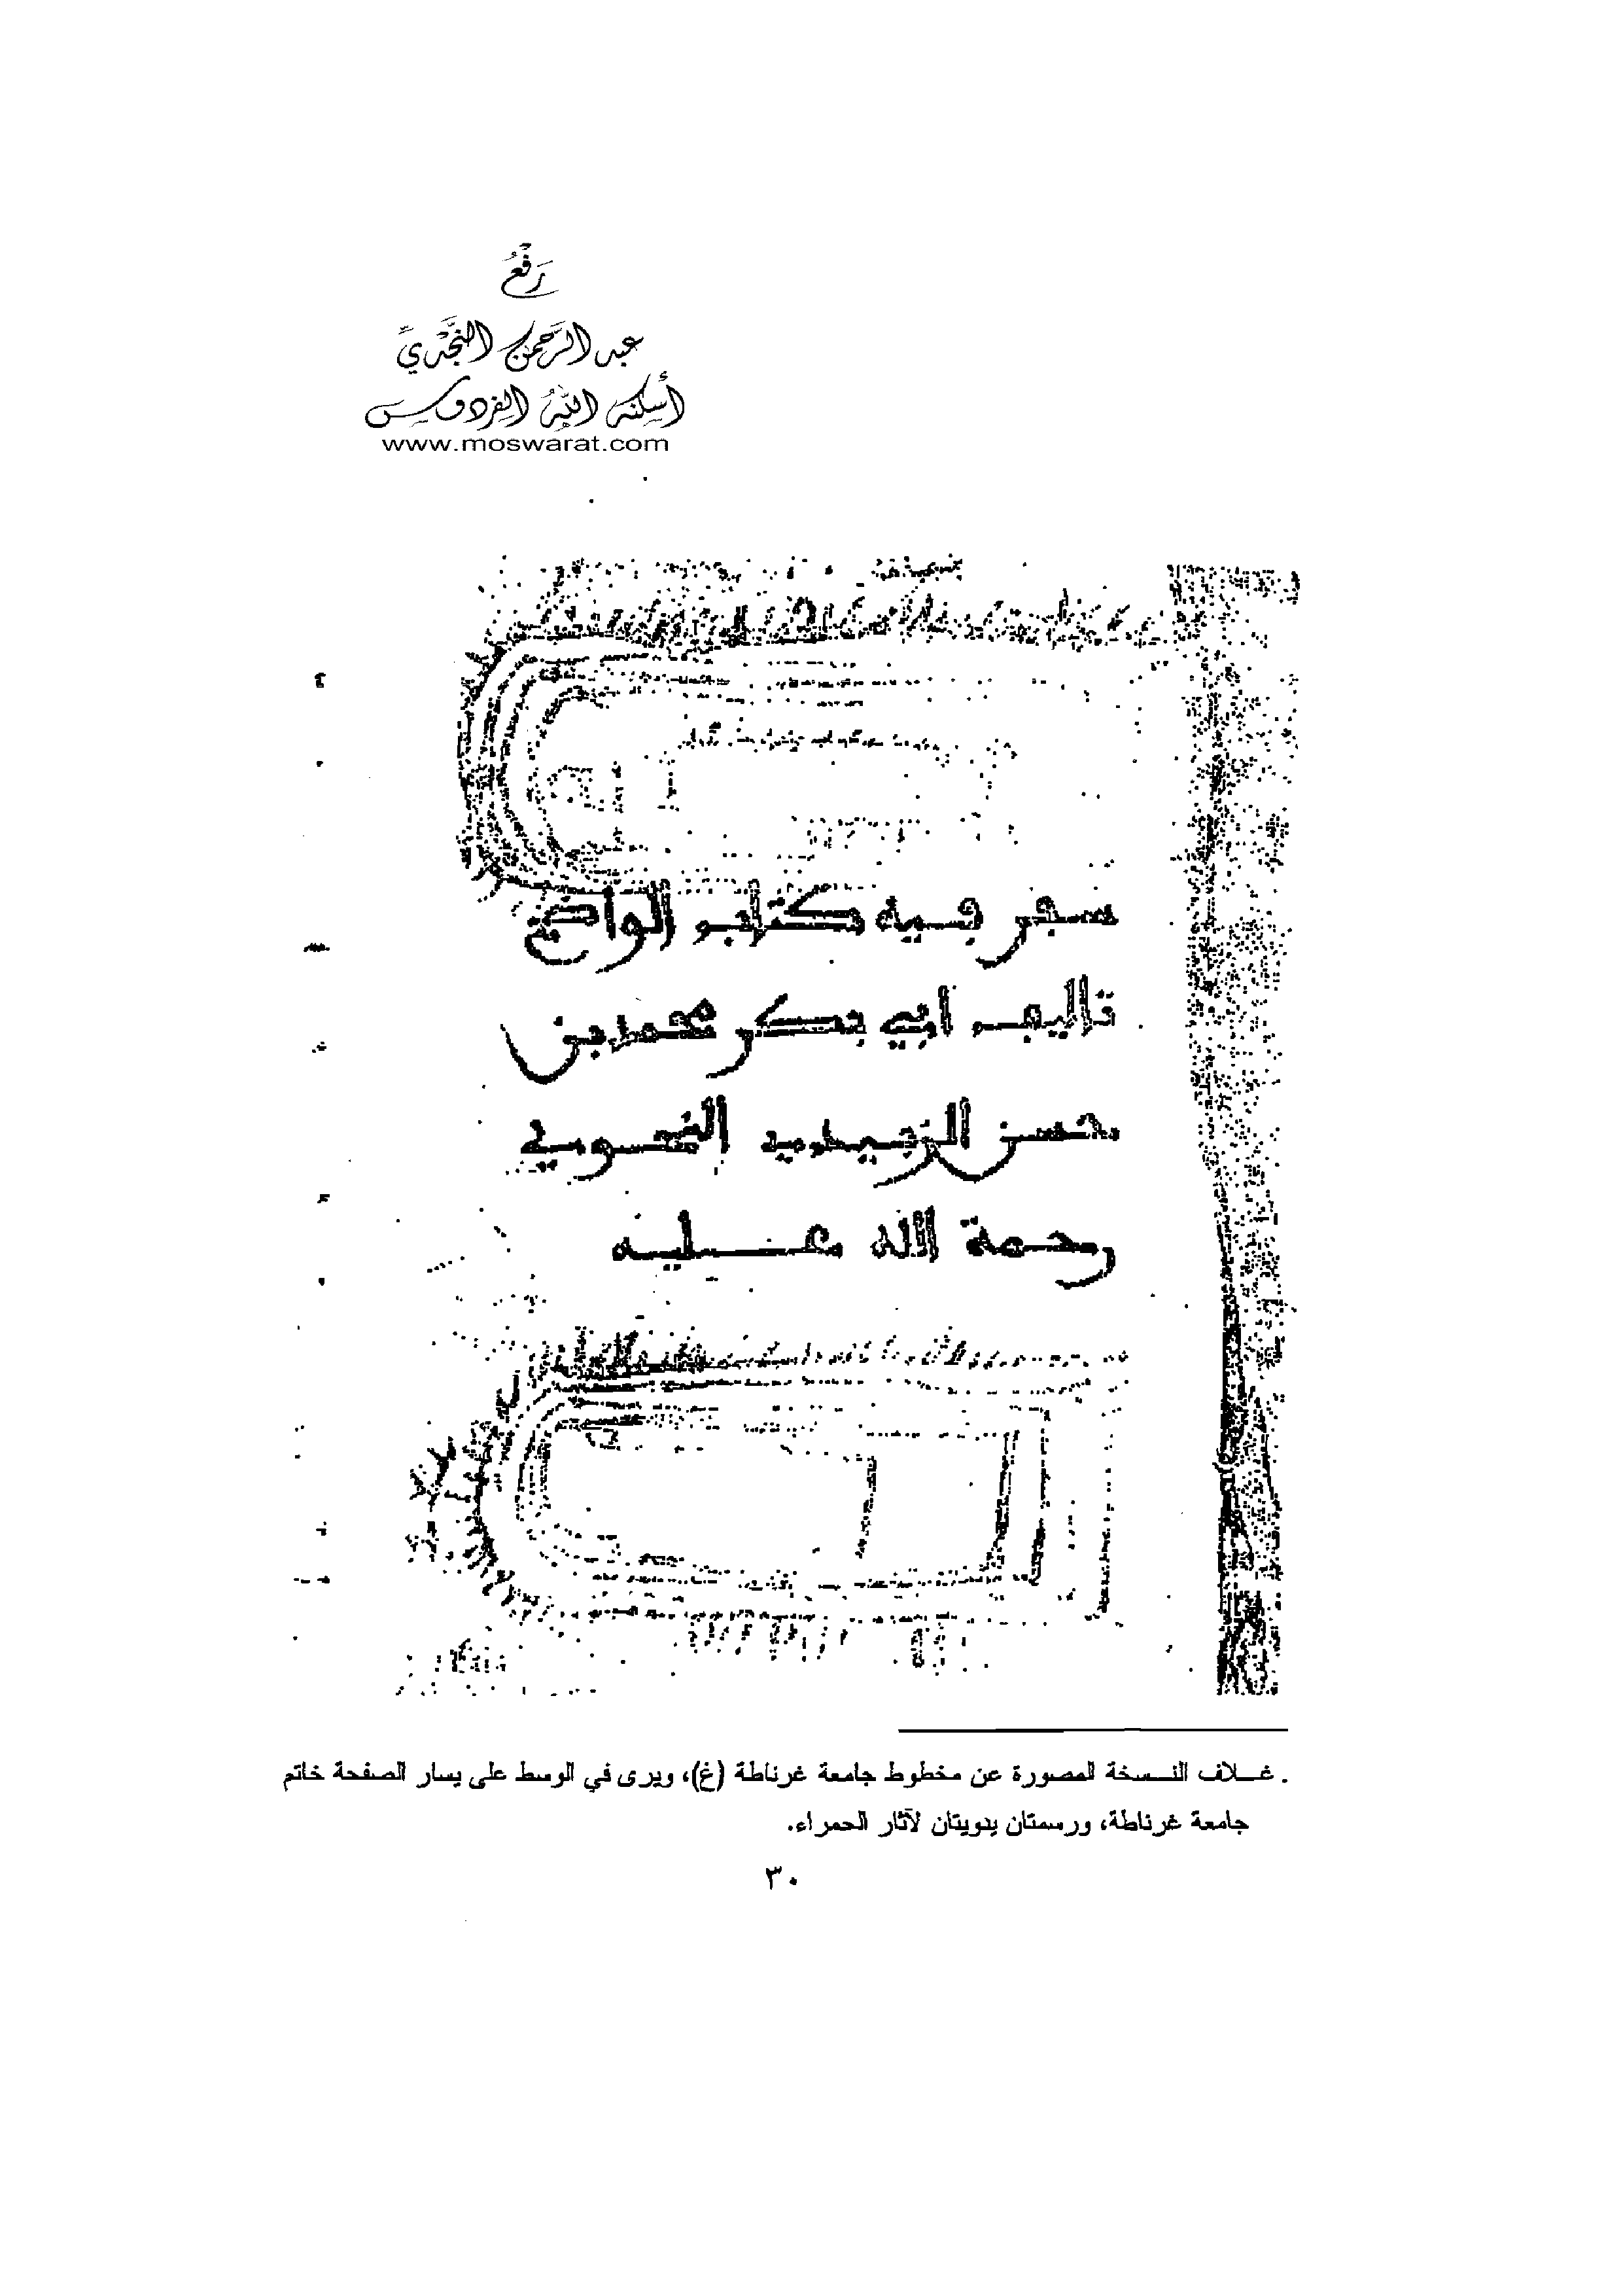 رَفْعُ
عبد الرَّحمن النَّجْدِيِّ
أسكنه الله الفردوس
www.moswarat.com
سفر فيه كتاب الواضح
تاليف ابي بكر محمد بن
حسن الزبيدي النحوي
رحمة الله عليه
. غلاف النسخة المصورة عن مخطوط جامعة غرناطة (غ)، ويرى في الوسط على يسار الصفحة خاتم
جامعة غرناطة، ورسمتان يدويتان لآثار الحمراء.
٣٠